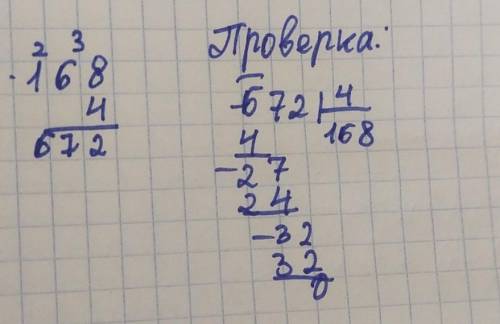 2 3
·168
4
672
Проверка:
-672 | 4
4 168
-27
24
-32
32
0